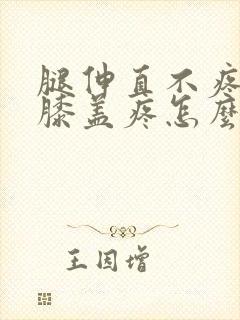 腿伸直不疼
膝盖疼怎麼
王因增